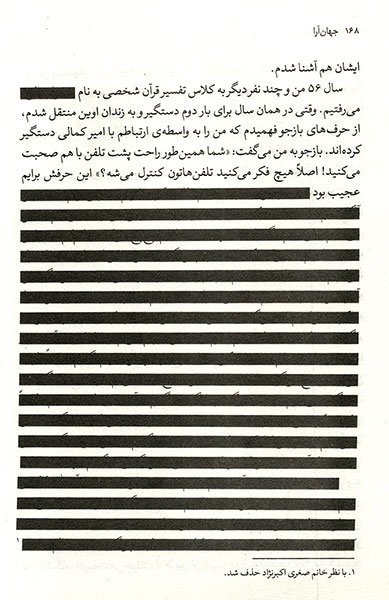 ۱۶۸ جهان‌آرا
ایشان هم آشنا شدم.
سال ۵۶ من و چند نفر دیگر به کلاس تفسیر قرآن شخصی به نام
می‌رفتیم. وقتی در همان سال برای بار دوم دستگیر و به زندان اوین منتقل شدم،
از حرف‌های بازجو فهمیدم که من را به واسطه‌ی ارتباطم با امیر کمالی دستگیر
کرده‌اند. بازجو به من می‌گفت: «شما همین‌طور راحت پشت تلفن با هم صحبت
می‌کنید! اصلاً هیچ فکر می‌کنید تلفن‌هاتون کنترل می‌شه؟» این حرفش برایم
عجیب بود
۱
۱. با نظر خانم صغری اکبرنژاد حذف شد.